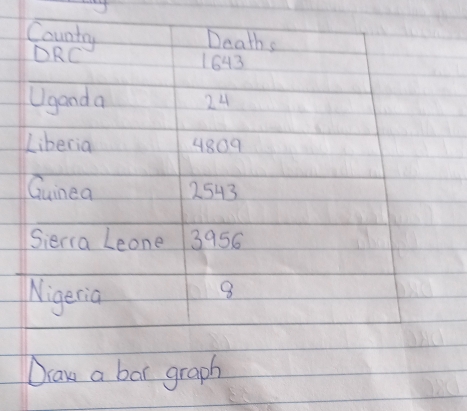 Country Deaths
DRC 1643
Uganda 24
Liberia 4809
Guinea 2543
Sierra Leone 3956
Nigeria 8
Draw a bar graph